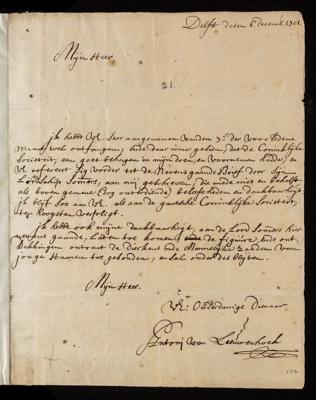 Delft desen 6e decemb. 1701
Mijn Heer
21.
ik hebbe UE. seer aengenamen vanden 7e der voorledene
Maent, wel ontfangen, ende daer inne gesien, dat de Coninklijke
Societeit, een goet behagen in mijn doen, en voornemen hadde, en
UE. refereert sig vorder tot de nevensgaende Brief door sijn
Lordschip Somers, aan mij geschreven, die mede niet en behelst
als boven gemene (dog onverdiende) beleeftheden en dankbaarheijt
ik blijf soo aan UE. als aan de gantsche Coninklijke Societeit,
ten hoogsten verpligt.
ik hebbe ook mijne dankbaarheijt, aan de Lord Somers hier
nevens gaande, laten toe komen, ende de figuire, ende ont-
dekkingen ontrent de Dierkens inde Mannelijke zaaden van
jonge Hanen tot gebonden, en sal onder des blijven.
Mijn Heer.
UE: Onderdanige Dienaar
Antonj van Leeuwenhoek
122